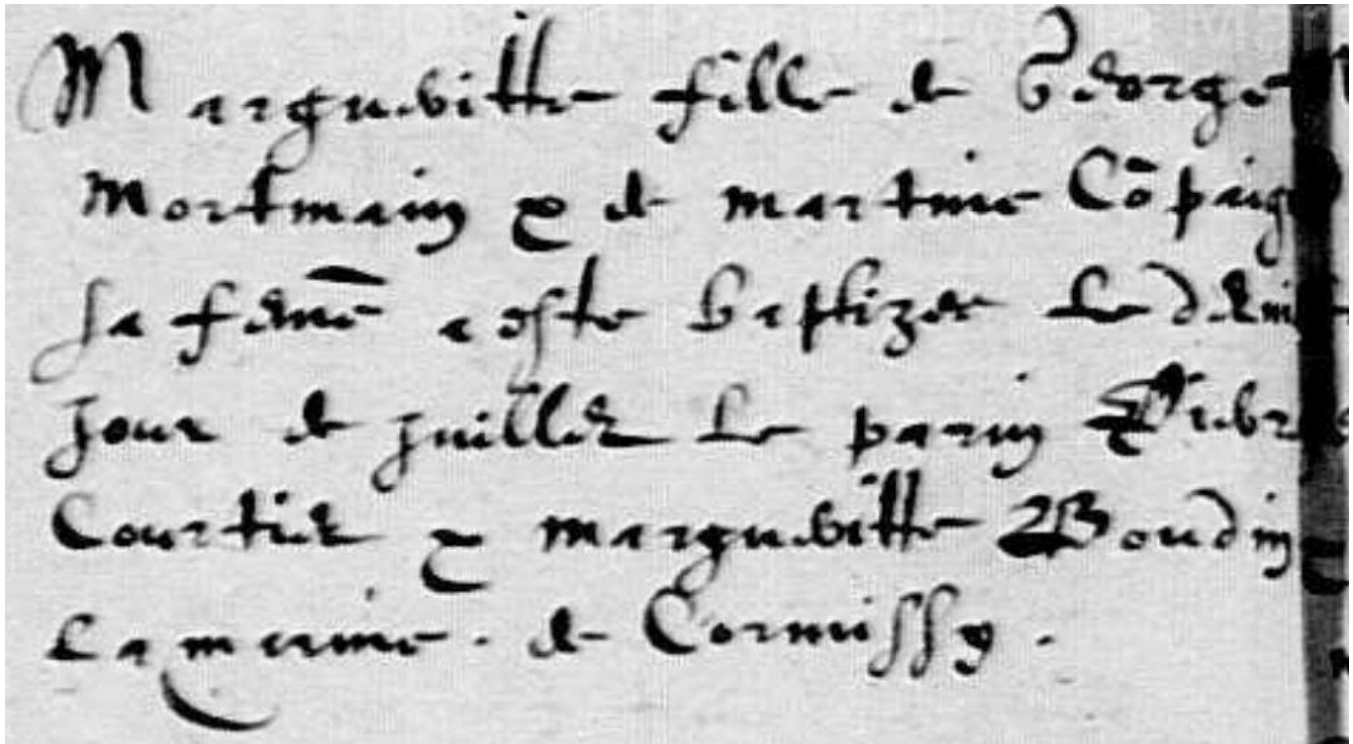 Margueritte fille de George
Mortmain & de martine Cōpaig
sa femē a este baptizee le derni
jour de juillet le parin
Courtier & margueritte Boudin
la marine . de Cormissy .